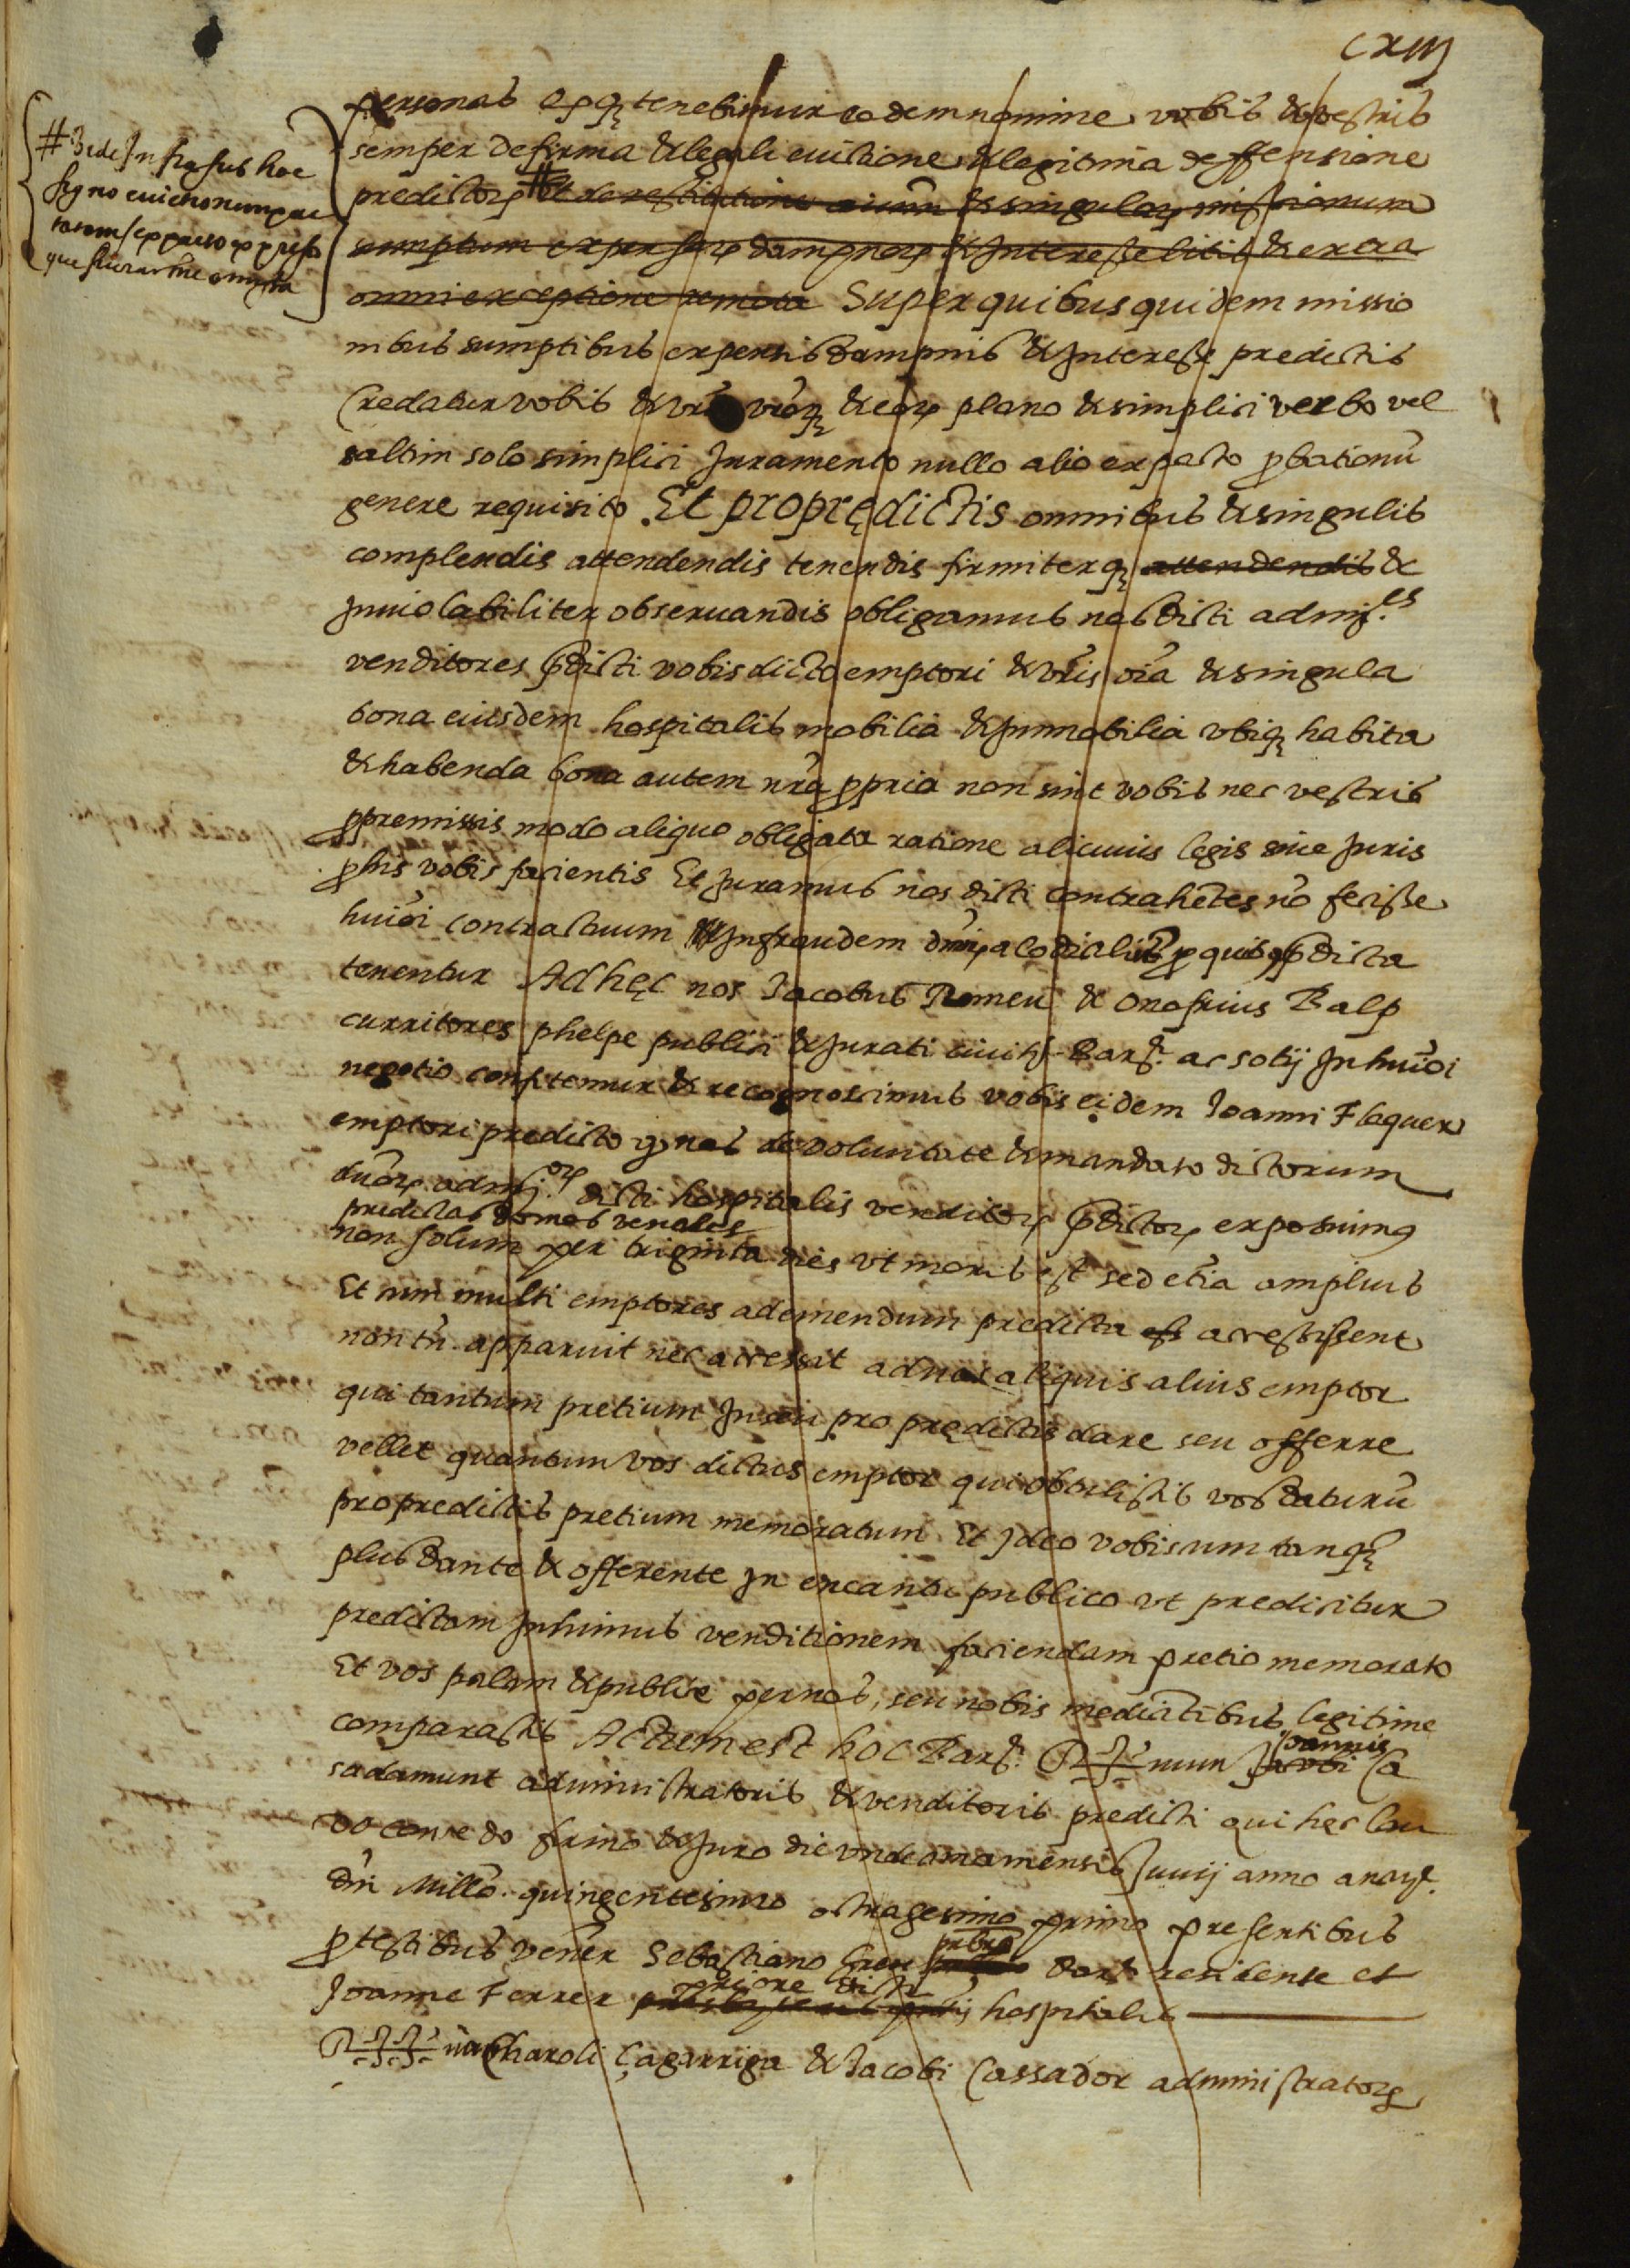 CXIIJ
# Vide Infra sub hoc
signo evictionem
personas Et qz tenebimur eodem nomine vobis & vestris
semper de firma & legali evictione & legitima deffensione
predictorz # Et de restitutione oium & singularz missionum
sumptuum expensarz dampnorz & Interesse litis & extra
omni exceptione remota Super quibus quidem missio
nibus sumptibus expensis dampnis & Interesse predictis
Credatur vobis & vris & eorz plano & simplici verbo vel
saltim solo simplici Juramento nullo alio expecto pbationu
genere requisito. Et pro prędictis omnibus & singulis
complendis attendendis tenendis firmiterqz attendendis &
Inviolabiliter observandis obligamus nos dicti admi.es
venditores pdicti vobis dicto emptori & vris oia & singula
bona eiusdem hospitalis mobilia & Immobilia vbiqz habita
& habenda bona autem nra ppria non sint vobis nec vestris
p premissis modo aliquo obligata ratione alicuius legis sive Juris
p his vobis facientis Et Juramus nos dicti contrahetes no fecisse
huioi contractum In fraudem dnorz alodialiu p quibus pdicta
tenentur Ad hęc nos Jacobus Romeu & Onofrius Balp
curritores phelpe publici & Jurati civitis Barne. ac sotij In huioi
negotio confitemur & recognoscimus vobis eidem Joanni Flaquer
emptori predicto q nos de voluntate & mandato dictorum
duorz admi.orz dicti hospitalis venditorz pdictorz exposuimus
predictas domos venales
non solum per triginta dies vt moris est sed etia amplius
Et cum multi emptores ad emendum predicta accessissent
non tn apparuit nec accessit ad nos aliquis alius emptor
qui tantum pretium In pro prędictis dare seu offerre
vellet quantum vos dictus emptor qui obtulistis vos daturu
pro predictis pretium memoratum Et Ideo vobiscum tanqz
plus dante & offerente In encanto publico vt predicitur
predictam Inhimus venditionem faciendam pretio memorato
Et vos palam & publice per nos, seu nobis mediatibus legitime
comparastis Actum est hoc Barne. num Jacobi Joannis Ca
sadamunt administratoris & venditoris predicti qui hęc lau
do concedo firmo & Juro die vndecima mensis Junij anno a naye.
dni Millo. quingentesimo octuagesimo primo presentibus
p testibus vener Sebastiano Greu prbro Barne residente et
Joanne Ferrer priore dicti hospitalis
Charoli Çagarriga & Jacobi Cassador administratorz